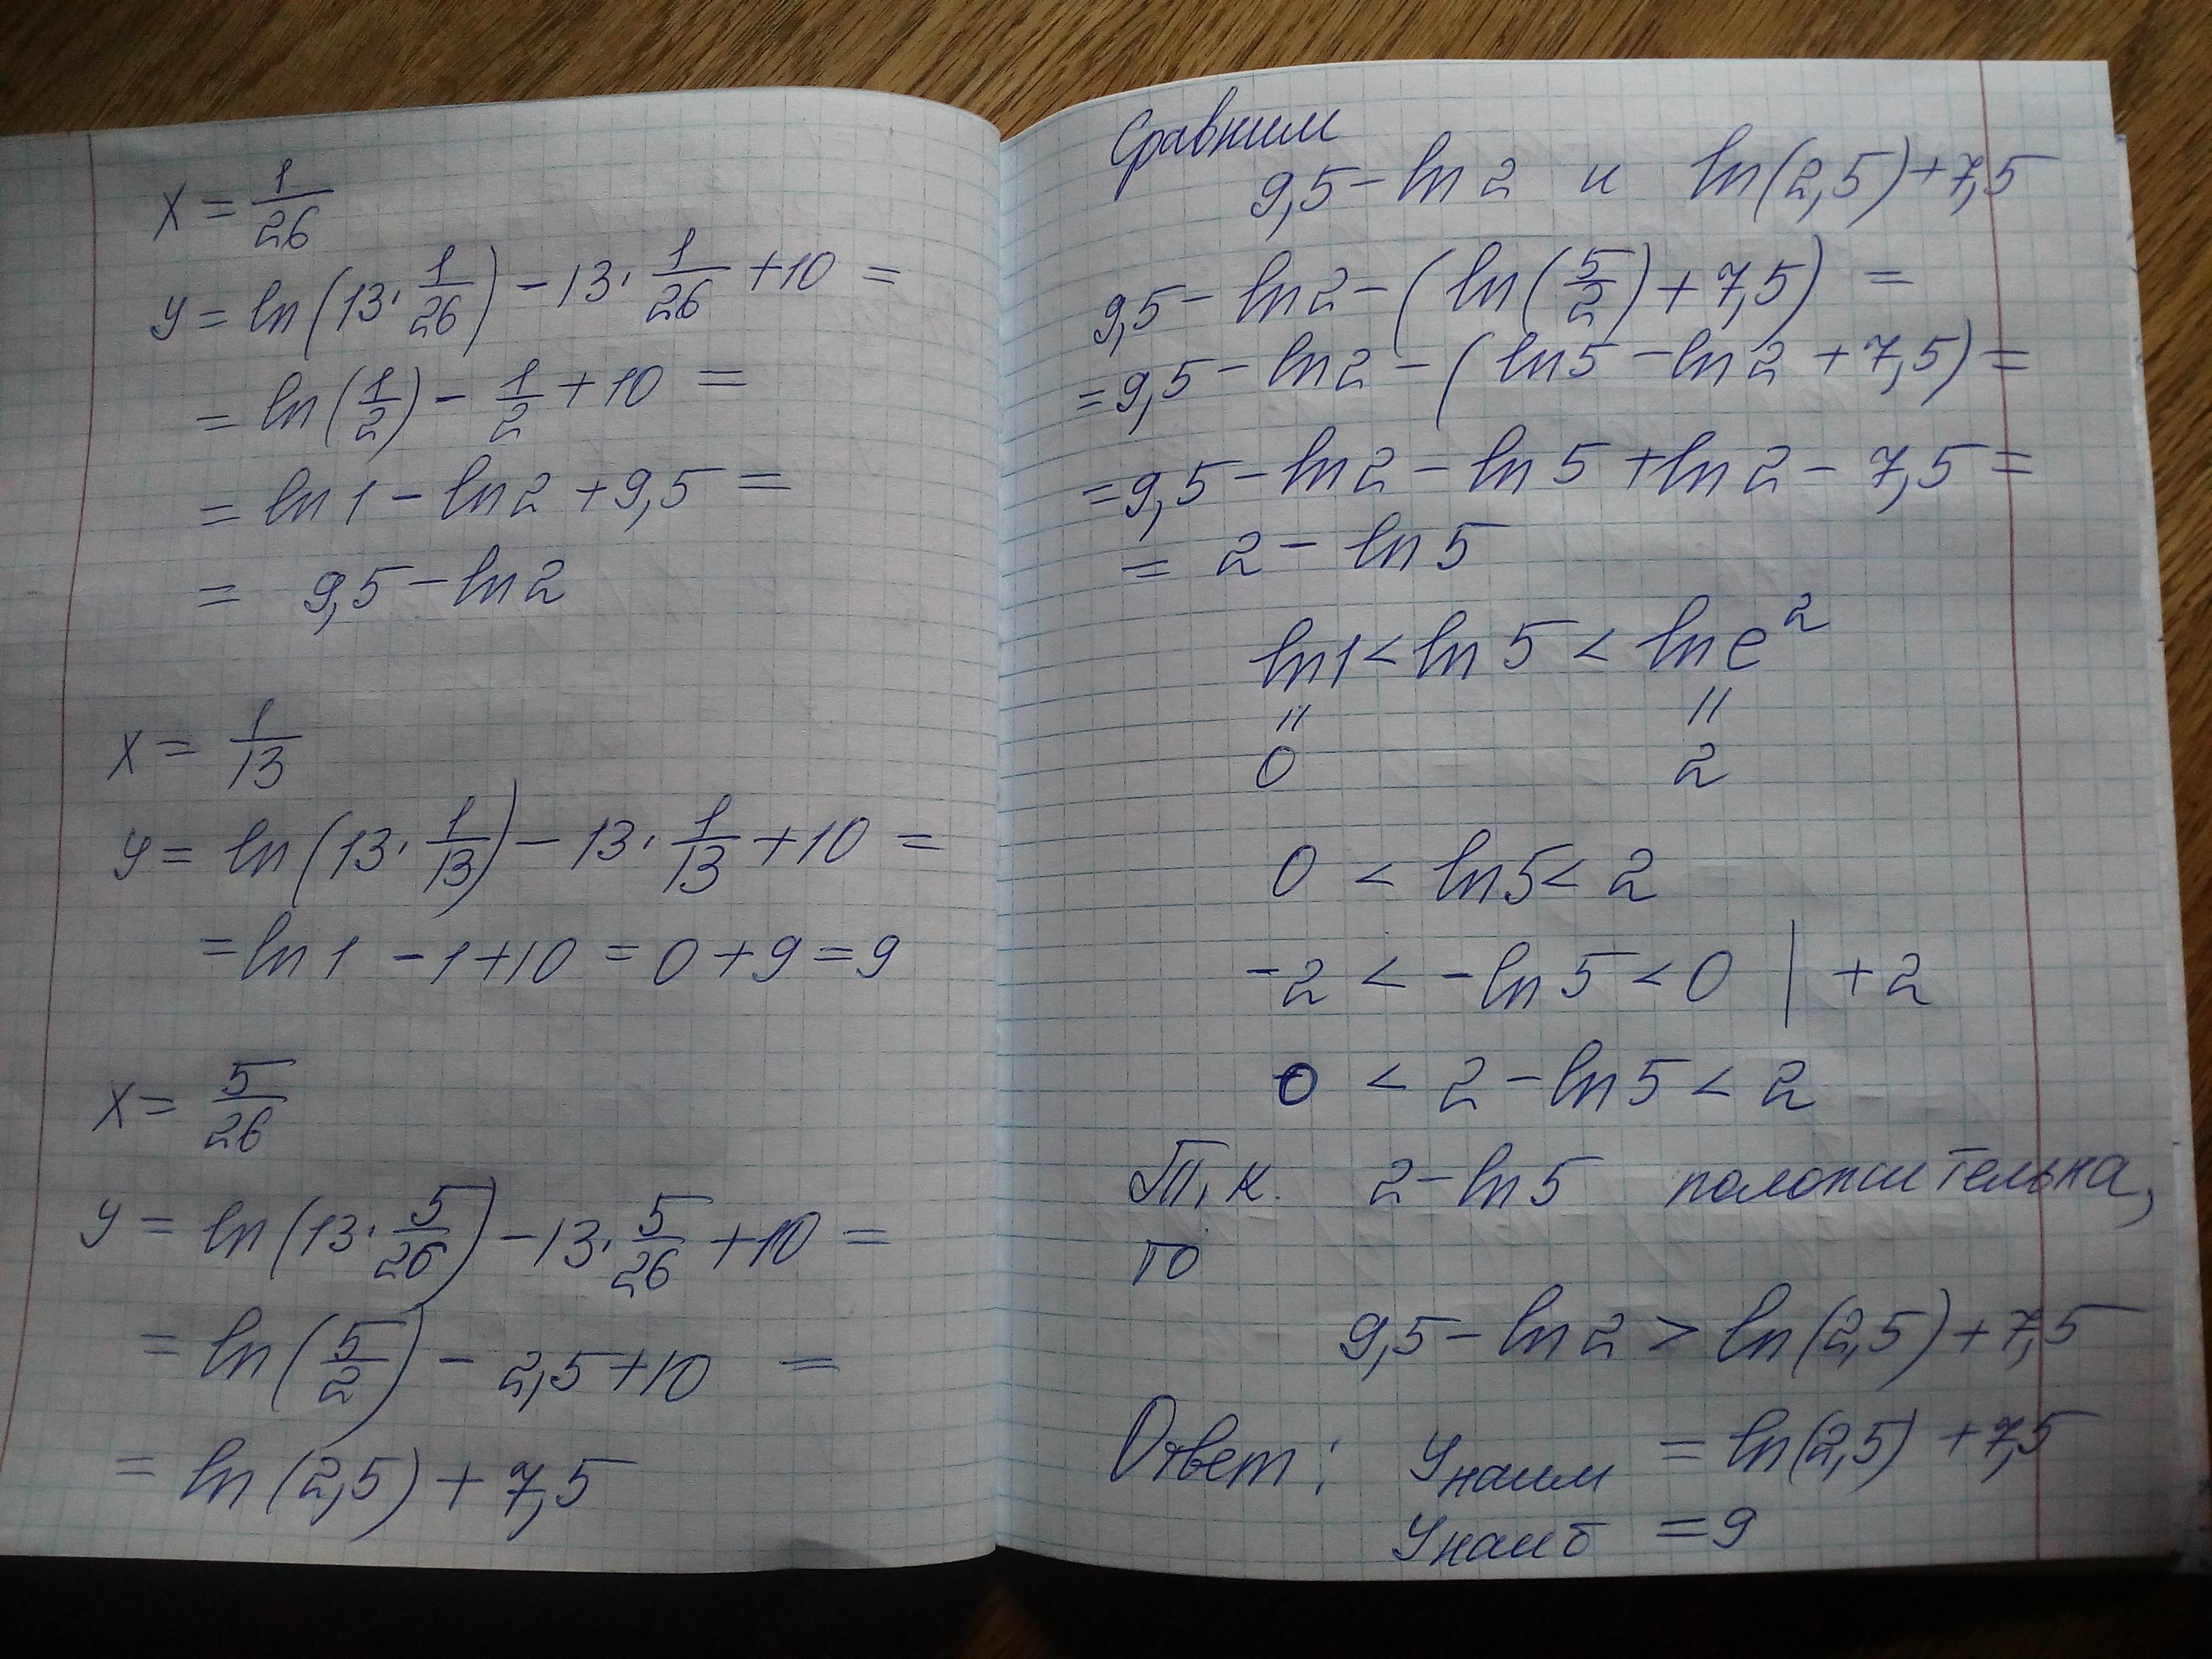 x = 1/26
y = ln(13·1/26) − 13·1/26 + 10 =
= ln(1/2) − 1/2 + 10 =
= ln 1 − ln 2 + 9,5 =
= 9,5 − ln 2
x = 1/13
y = ln(13·1/13) − 13·1/13 + 10 =
= ln 1 − 1 + 10 = 0 + 9 = 9
x = 5/26
y = ln(13·5/26) − 13·5/26 + 10 =
= ln(5/2) − 2,5 + 10 =
= ln(2,5) + 7,5
Сравним
9,5 − ln 2 и ln(2,5) + 7,5
9,5 − ln 2 − (ln(5/2) + 7,5) =
= 9,5 − ln 2 − (ln 5 − ln 2 + 7,5) =
= 9,5 − ln 2 − ln 5 + ln 2 − 7,5 =
= 2 − ln 5
ln 1 < ln 5 < ln e²
" "
0 2
0 < ln 5 < 2
−2 < −ln 5 < 0 | +2
0 < 2 − ln 5 < 2
Т.к. 2 − ln 5 положительна,
то
9,5 − ln 2 > ln(2,5) + 7,5
Ответ: Yнаим = ln(2,5) + 7,5
Yнаиб = 9